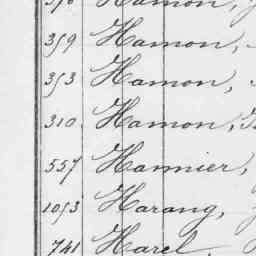 Hamon,
359 Hamon,
353 Hamon,
310 Hamon,
557 Hamier,
1053 Harang,
741 Harel,